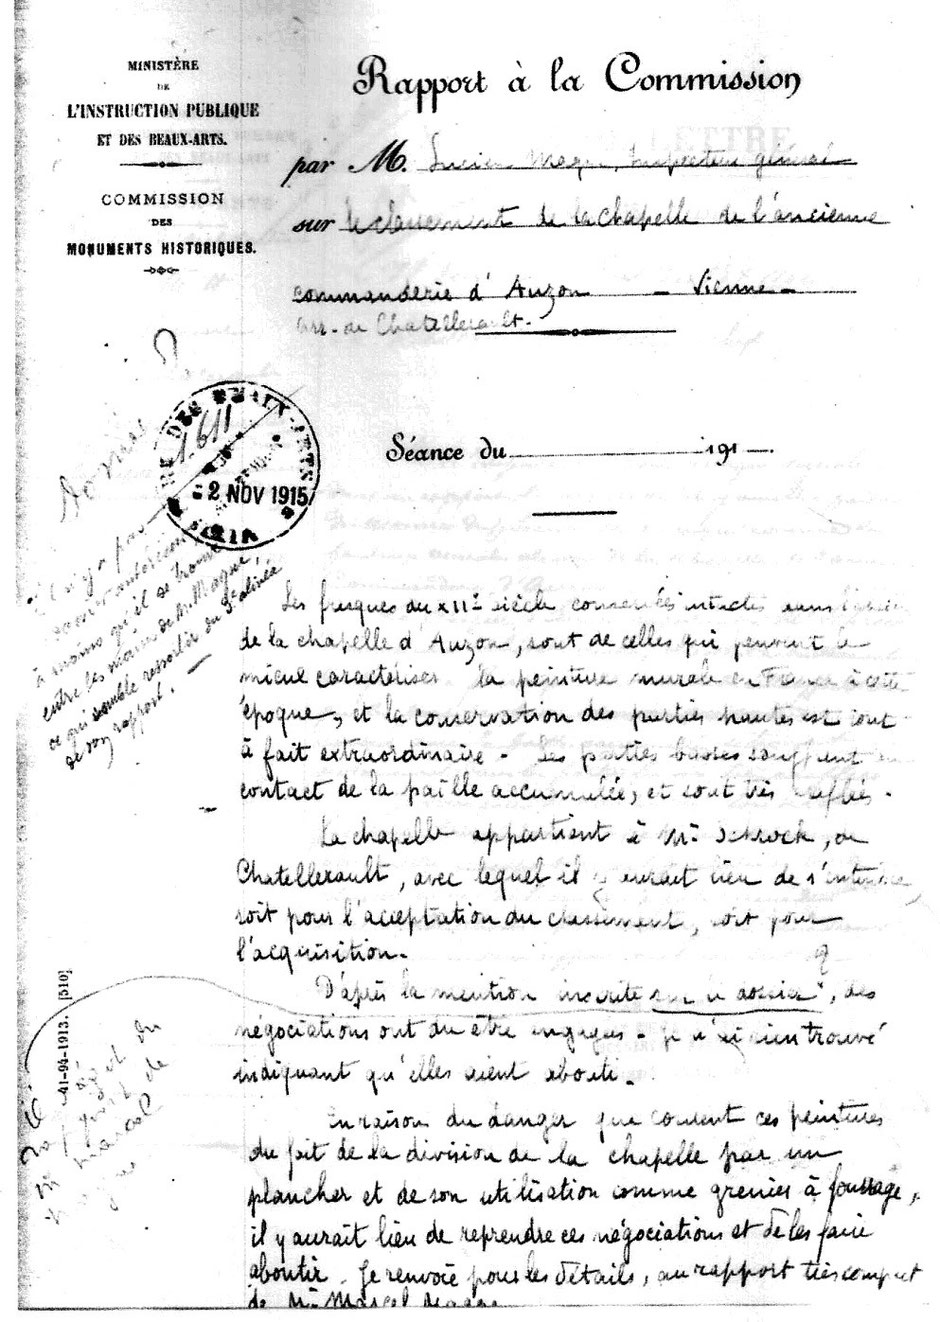 MINISTÈRE
DE
L'INSTRUCTION PUBLIQUE
ET DES BEAUX-ARTS.
COMMISSION
DES
MONUMENTS HISTORIQUES.
Rapport à la Commission
par M. Lucien Magne, Inspecteur général
sur le classement de la chapelle de l'ancienne
commanderie d'Auzon — Vienne —
arr. de Chatellerault.
Séance du 191 .
DES BEAUX-ARTS
1611
2 NOV 1915
Dossier ?
Il n'y a pas
dossier antérieur
à moins qu'il se trouve
entre les mains de M. Magne
ce qui semble ressortir du 3e alinéa
de son rapport. —
Les fresques du XIIe siècle conservées intactes dans
de la chapelle d'Auzon, sont de celles qui peuvent le
mieux caractériser la peinture murale en France à cette
époque, et la conservation des parties hautes est tout
à fait extraordinaire - Les parties basses souffrent du
contact de la paille accumulée, et sont très
La chapelle appartient à Mr , de
Chatellerault, avec lequel il y aurait lieu de s'entendre,
soit pour l'acceptation du classement, soit pour
l'acquisition.
D'après la mention inscrite sur le dossier, des
négociations ont du être engagées - Je n'ai rien trouvé
indiquant qu'elles aient abouti.
En raison du danger que courent ces peintures
du fait de la division de la chapelle par un
plancher et de son utilisation comme grenier à fourrage,
il y aurait lieu de reprendre ces négociations et de les faire
aboutir. Je renvoie pour les détails, au rapport très complet
de Mr Marcel Magne
41-94-1913. [510]